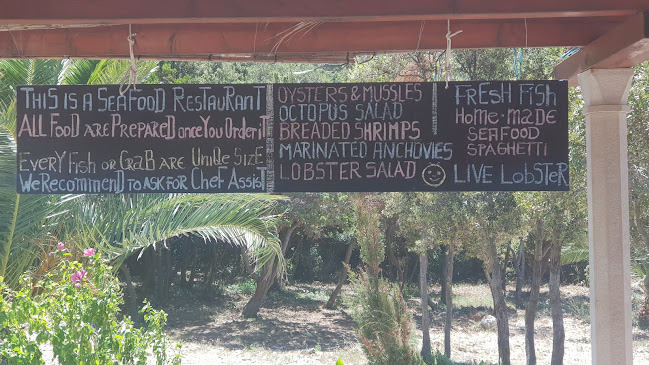 THIS IS A SEAFOOD RESTAURANT
ALL FOOD ARE PREPARED ONCE YOU ORDER iT
EVERY FISH OR CRAB ARE UNIQE SIZE
WE RECOMMEND TO ASK FOR CHEF ASSIST
OYSTERS & MUSSLES
OCTOPUS SALAD
BREADED SHRIMPS
MARINATED ANCHOVIES
LOBSTER SALAD
FRESH FISH
HOME-MADE
SEAFOOD
SPAGHETTI
LIVE LOBSTER